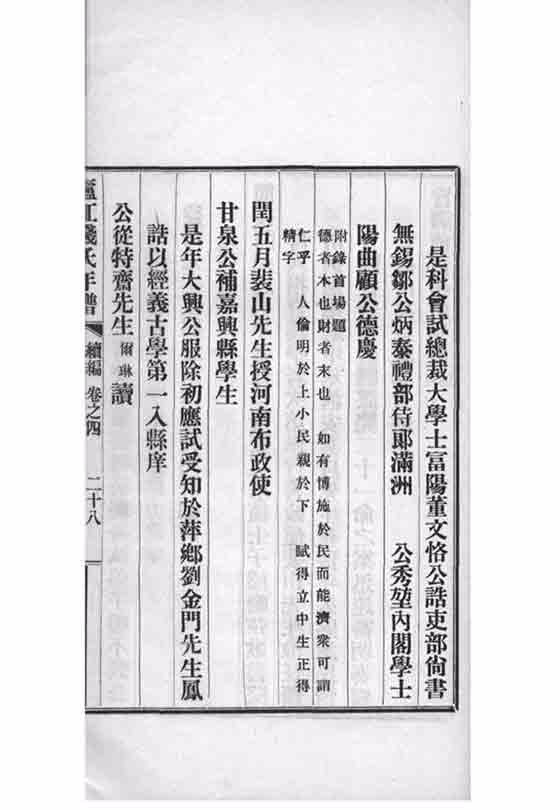 是科會試總裁大學士富陽董文恪公誥吏部尙書
無錫鄒公炳泰禮部侍郞滿洲　公秀堃內閣學士
陽曲顧公德慶
附錄首場題
德者本也財者末也　如有博施於民而能濟衆可謂
仁乎　人倫明於上小民親於下　賦得立中生正得
精字
閏五月裴山先生授河南布政使
甘泉公補嘉興縣學生
是年大興公服除初應試受知於萍鄕劉金門先生鳳
誥以經義古學第一入縣庠
公從特齋先生爾琳讀
廬江錢氏年譜　續編　卷之四　二十八